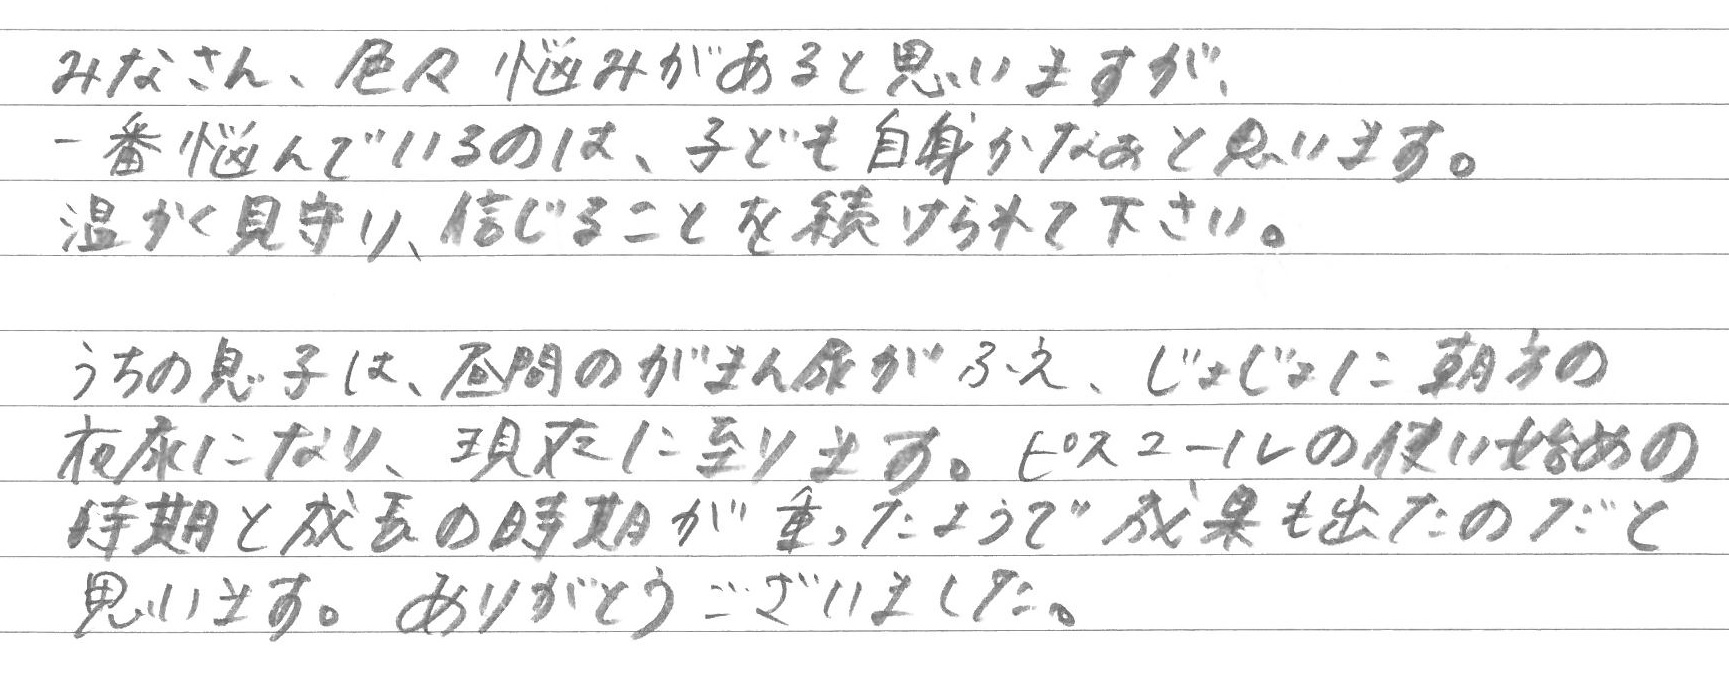 みなさん、色々悩みがあると思いますが、
一番悩んでいるのは、子ども自身かなぁと思います。
温かく見守り、信じることを続けられて下さい。
うちの息子は、昼間のがまん尿がふえ、じょじょに朝方の
夜尿になり、現在に至ります。ピスコールの使い始めの
時期と成長の時期が重ったようで成果も出たのだと
思います。ありがとうございました。